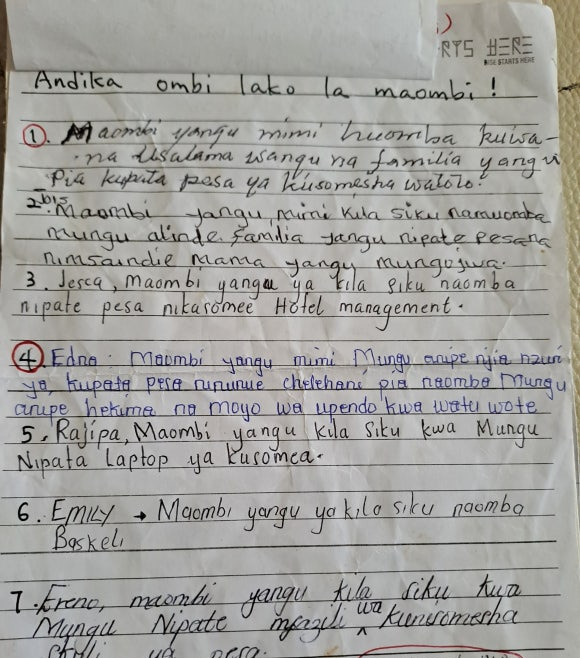 RTS HERE
RISE STARTS HERE
Andika ombi lako la maombi!
1. Maombi yangu mimi huomba kuwa
na Usalama wangu na familia yangu
Pia kupata pesa ya kusomesha watoto.
2. Maombi yangu, mimi kila siku namuomba
mungu alinde familia yangu nipate pesa na
nimsaindie mama yangu
3. Jesca, maombi yangu ya kila siku naomba
nipate pesa nikasomee Hotel management.
4. Edna: Maombi yangu mimi Mungu anipe njia nzuri
ya kupata pesa nununue cherehani pia naomba Mungu
anipe hekima na moyo wa upendo kwa watu wote
5. Rajipa, Maombi yangu kila siku kwa Mungu
Nipata Laptop ya kusomea.
6. EMILY → Maombi yangu ya kila siku naomba
Baskeli
7. Ereno, maombi yangu kila siku kwa
Mungu Nipate wa kunisomesha
ya pesa.